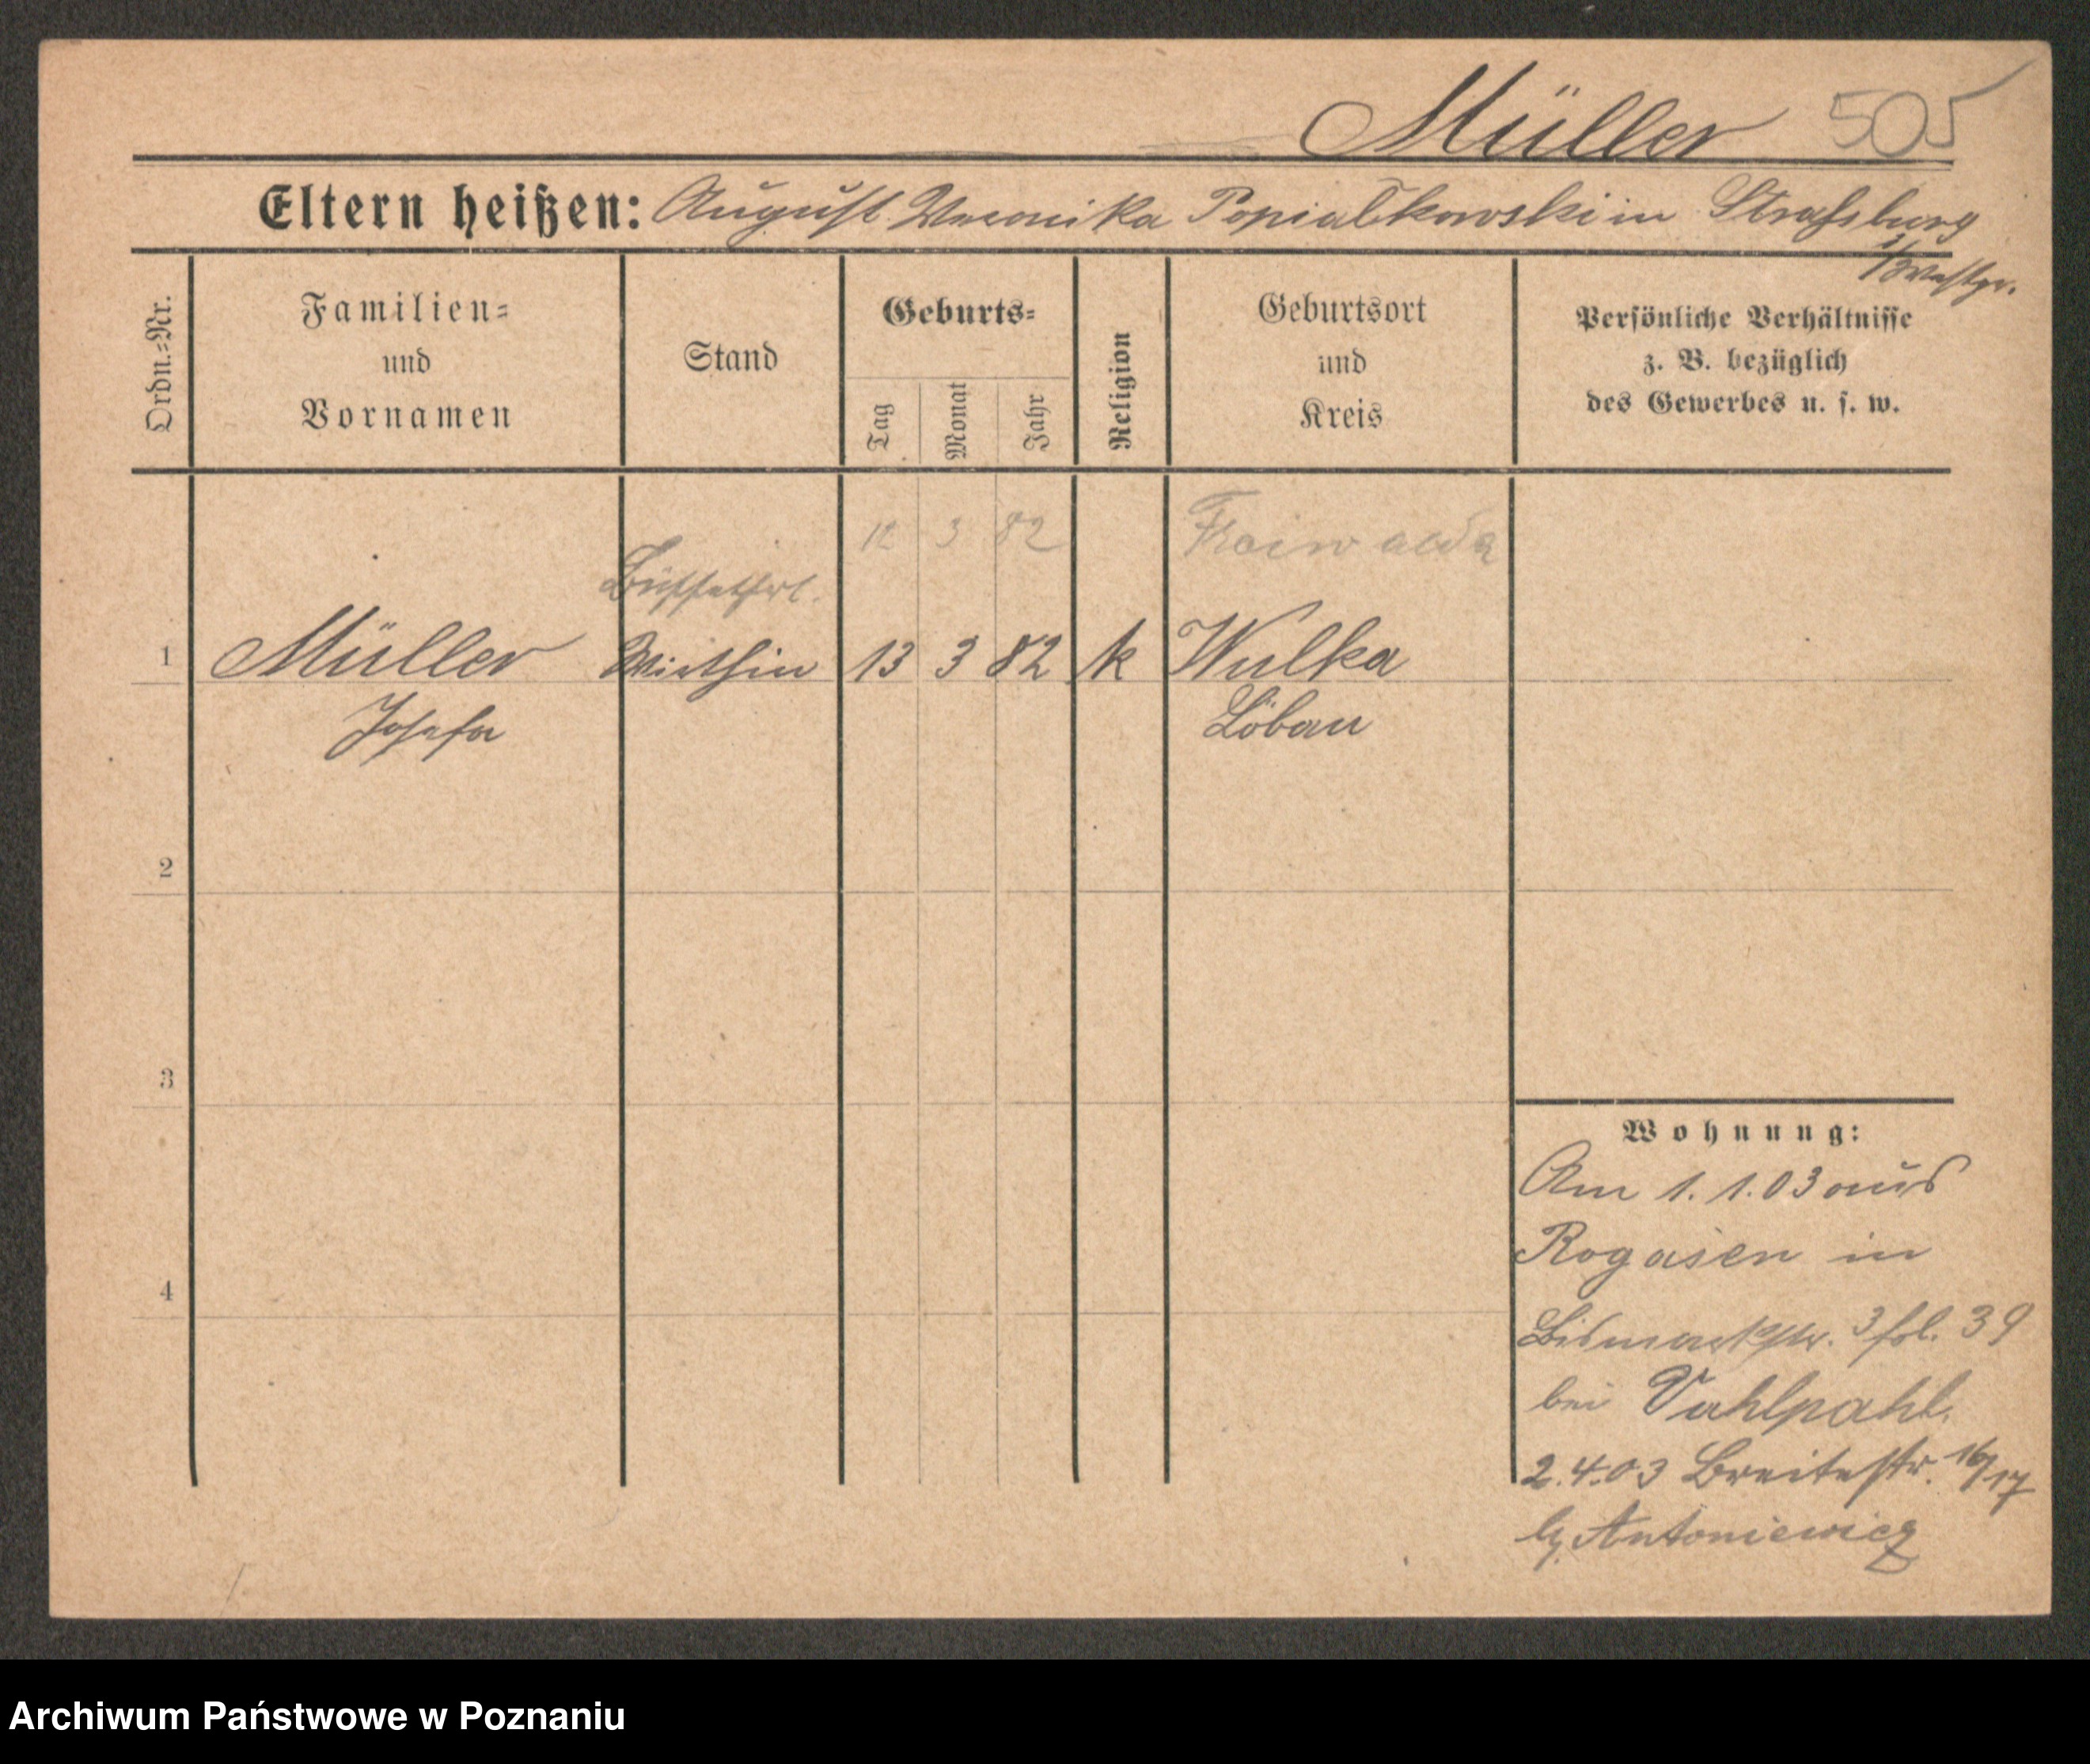 Müller 505
Eltern heißen: August Veronika Popialkowski in Straßburg
i/Westpr.
Ordn.=Nr.
Familien=
und
Vornamen
Stand
Geburts=
Tag
Monat
Jahr
Religion
Geburtsort
und
Kreis
Persönliche Verhältnisse
z. B. bezüglich
des Gewerbes u. s. w.
12 3 82
Büffetfrl.
1 Müller Wirthin 13 3 82 k Wulka
Josefa Löbau
2
3
4
Wohnung:
Am 1. 1. 03 aus
Rogasen in
Bismarckstr. 3 fol. 39
bei Vahlpahl.
2.4.03 Breitestr. 16/17
b/ Antoniewicz
Archiwum Państwowe w Poznaniu